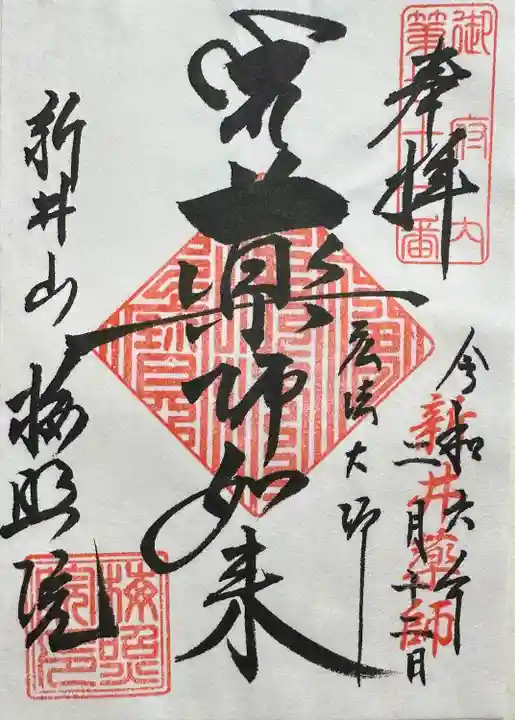 奉拝
御府内
第七十一番
令和六年
二月十二日
新井薬師
薬師如来
弘法大師
新井山 梅照院